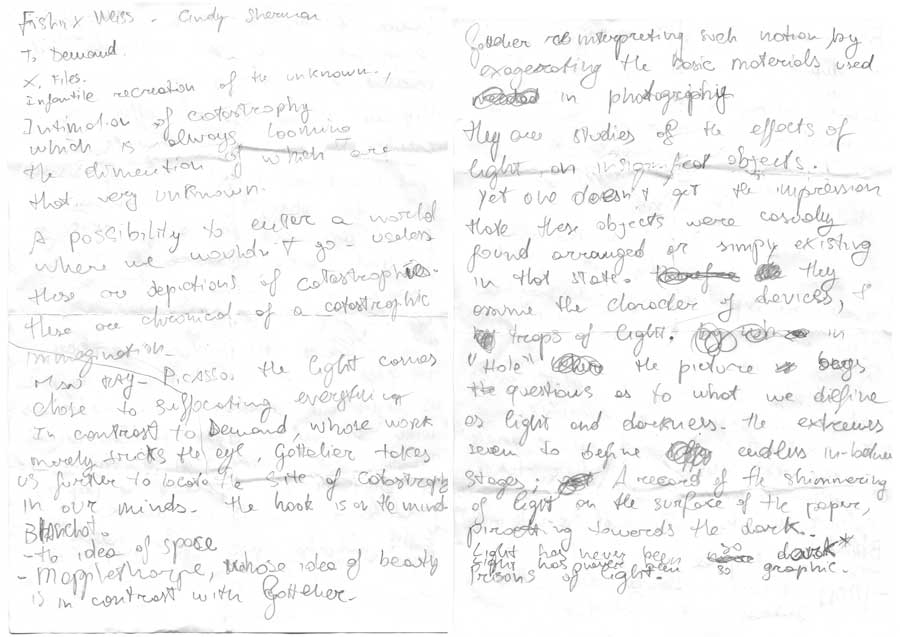 Fishli & Weiss - Cindy Sherman
T. Demand.
X. Files.
Infantile recreation of the unknown.,
Intimation of catastrophy
which is always looming
the dimention of which are
that very unknown.
A possibility to enter a world
where we wouldn't go - useless
these are depictions of catastrophies.
these are chronical of a catastrophic
immagination -
Man Ray - Picasso. the light comes
close to suffocating everything
In contrast to Demand, whose work
merely tricks the eye, Gottelier takes
us further to locate the site of catastroph
in our minds. the hook is on the mind
Blanchot.
- the idea of space
- Mapplethorpe, whose idea of beauty
is in contrast with Gottelier -
Gottelier reinterpreting such notion by
exagerating the basic materials used
in photography
they are studies of the effects of
light on insignificat objects.
Yet one doesn't get the impression
thate these objects were casually
found arranged or simply existing
in that state. they
assume the character of devices, of
traps of light. in
"Hole" the picture begs
the questions as to what we difine
as light and darkness. the extremes
seem to define endless in-between
stages; A record of the shimmering
of light on the surface of the paper,
towards the dark.
Light has never been so dark*
Light has never been so graphic.
Prisons of light.